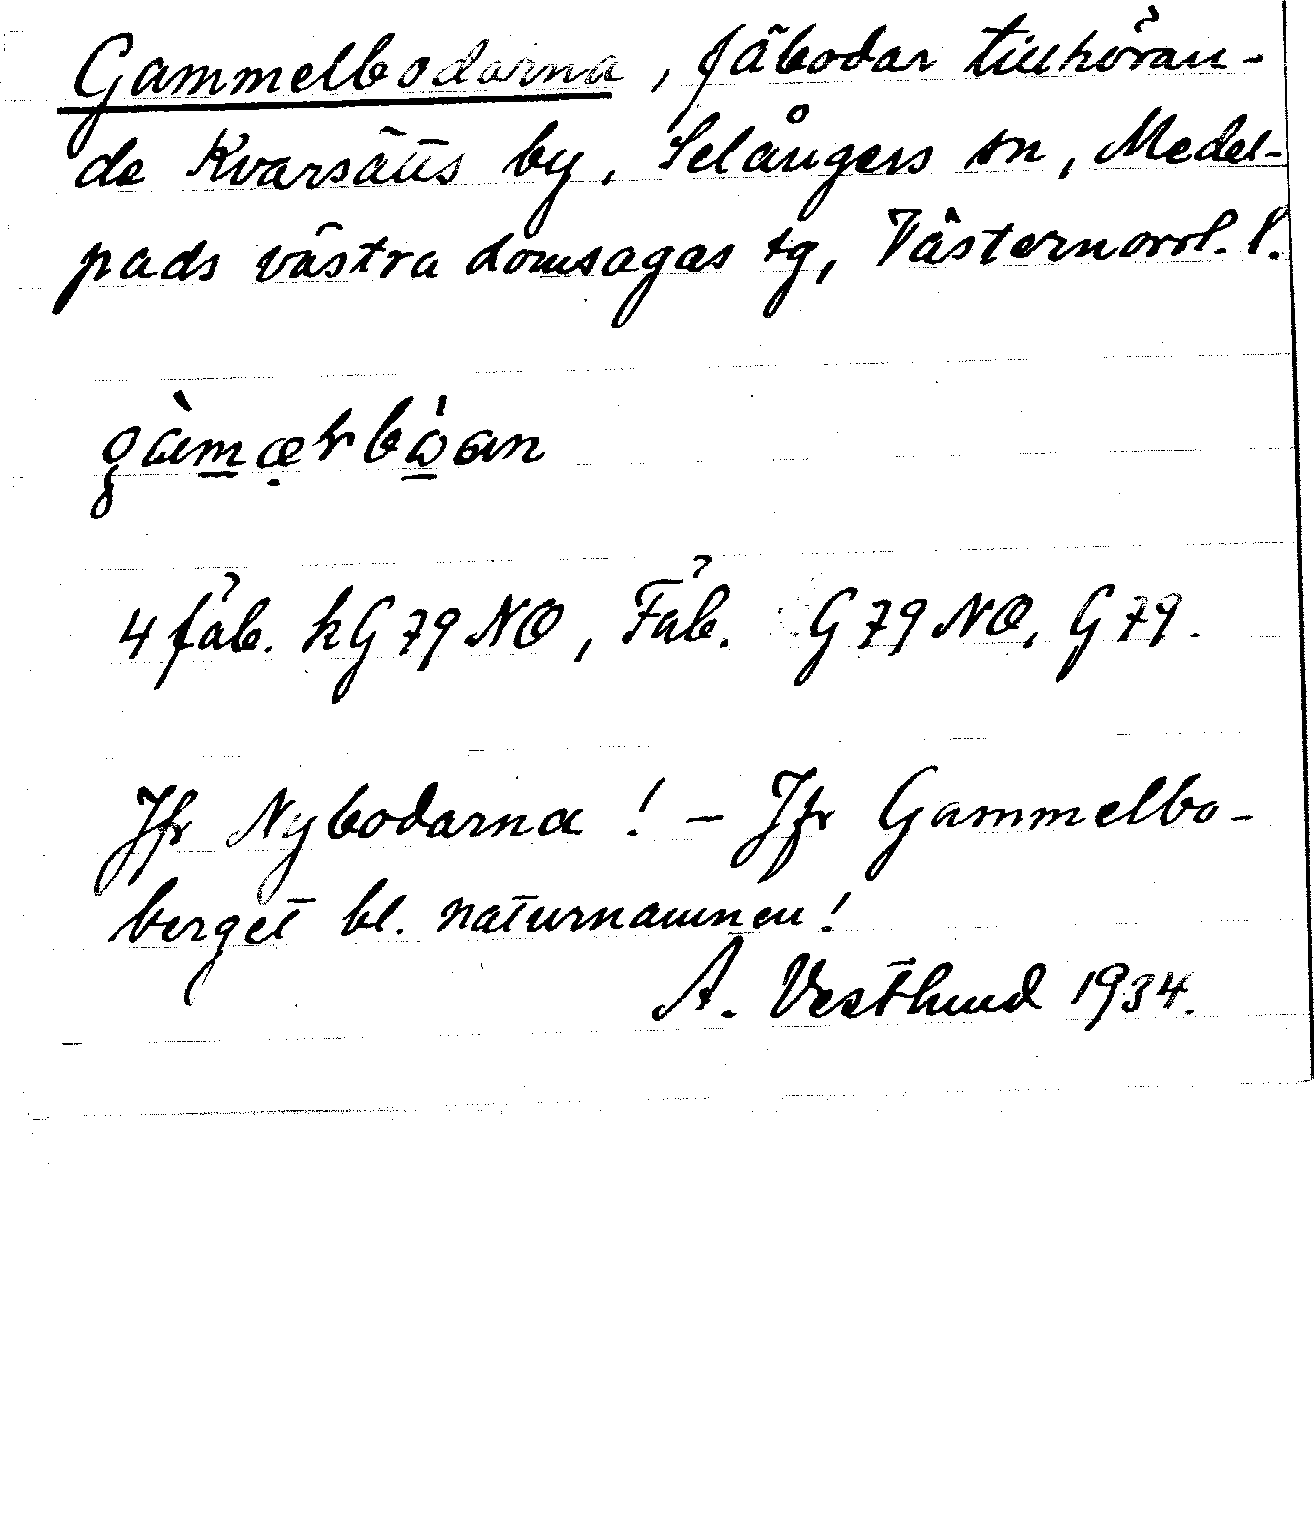 Gammelbodarna, fäbodar tillhöran-
de Kvarsätts by, Selångers sn, Medel-
pads västra domsagas tg, Västernorrl. l.
4 fäb. kG 79 NO, Fäb. G 79 NO, G 79.
Jfr Nybodarna! - Jfr Gammelbo-
berget bl. naturnamnen!
A. Vestlund 1934.